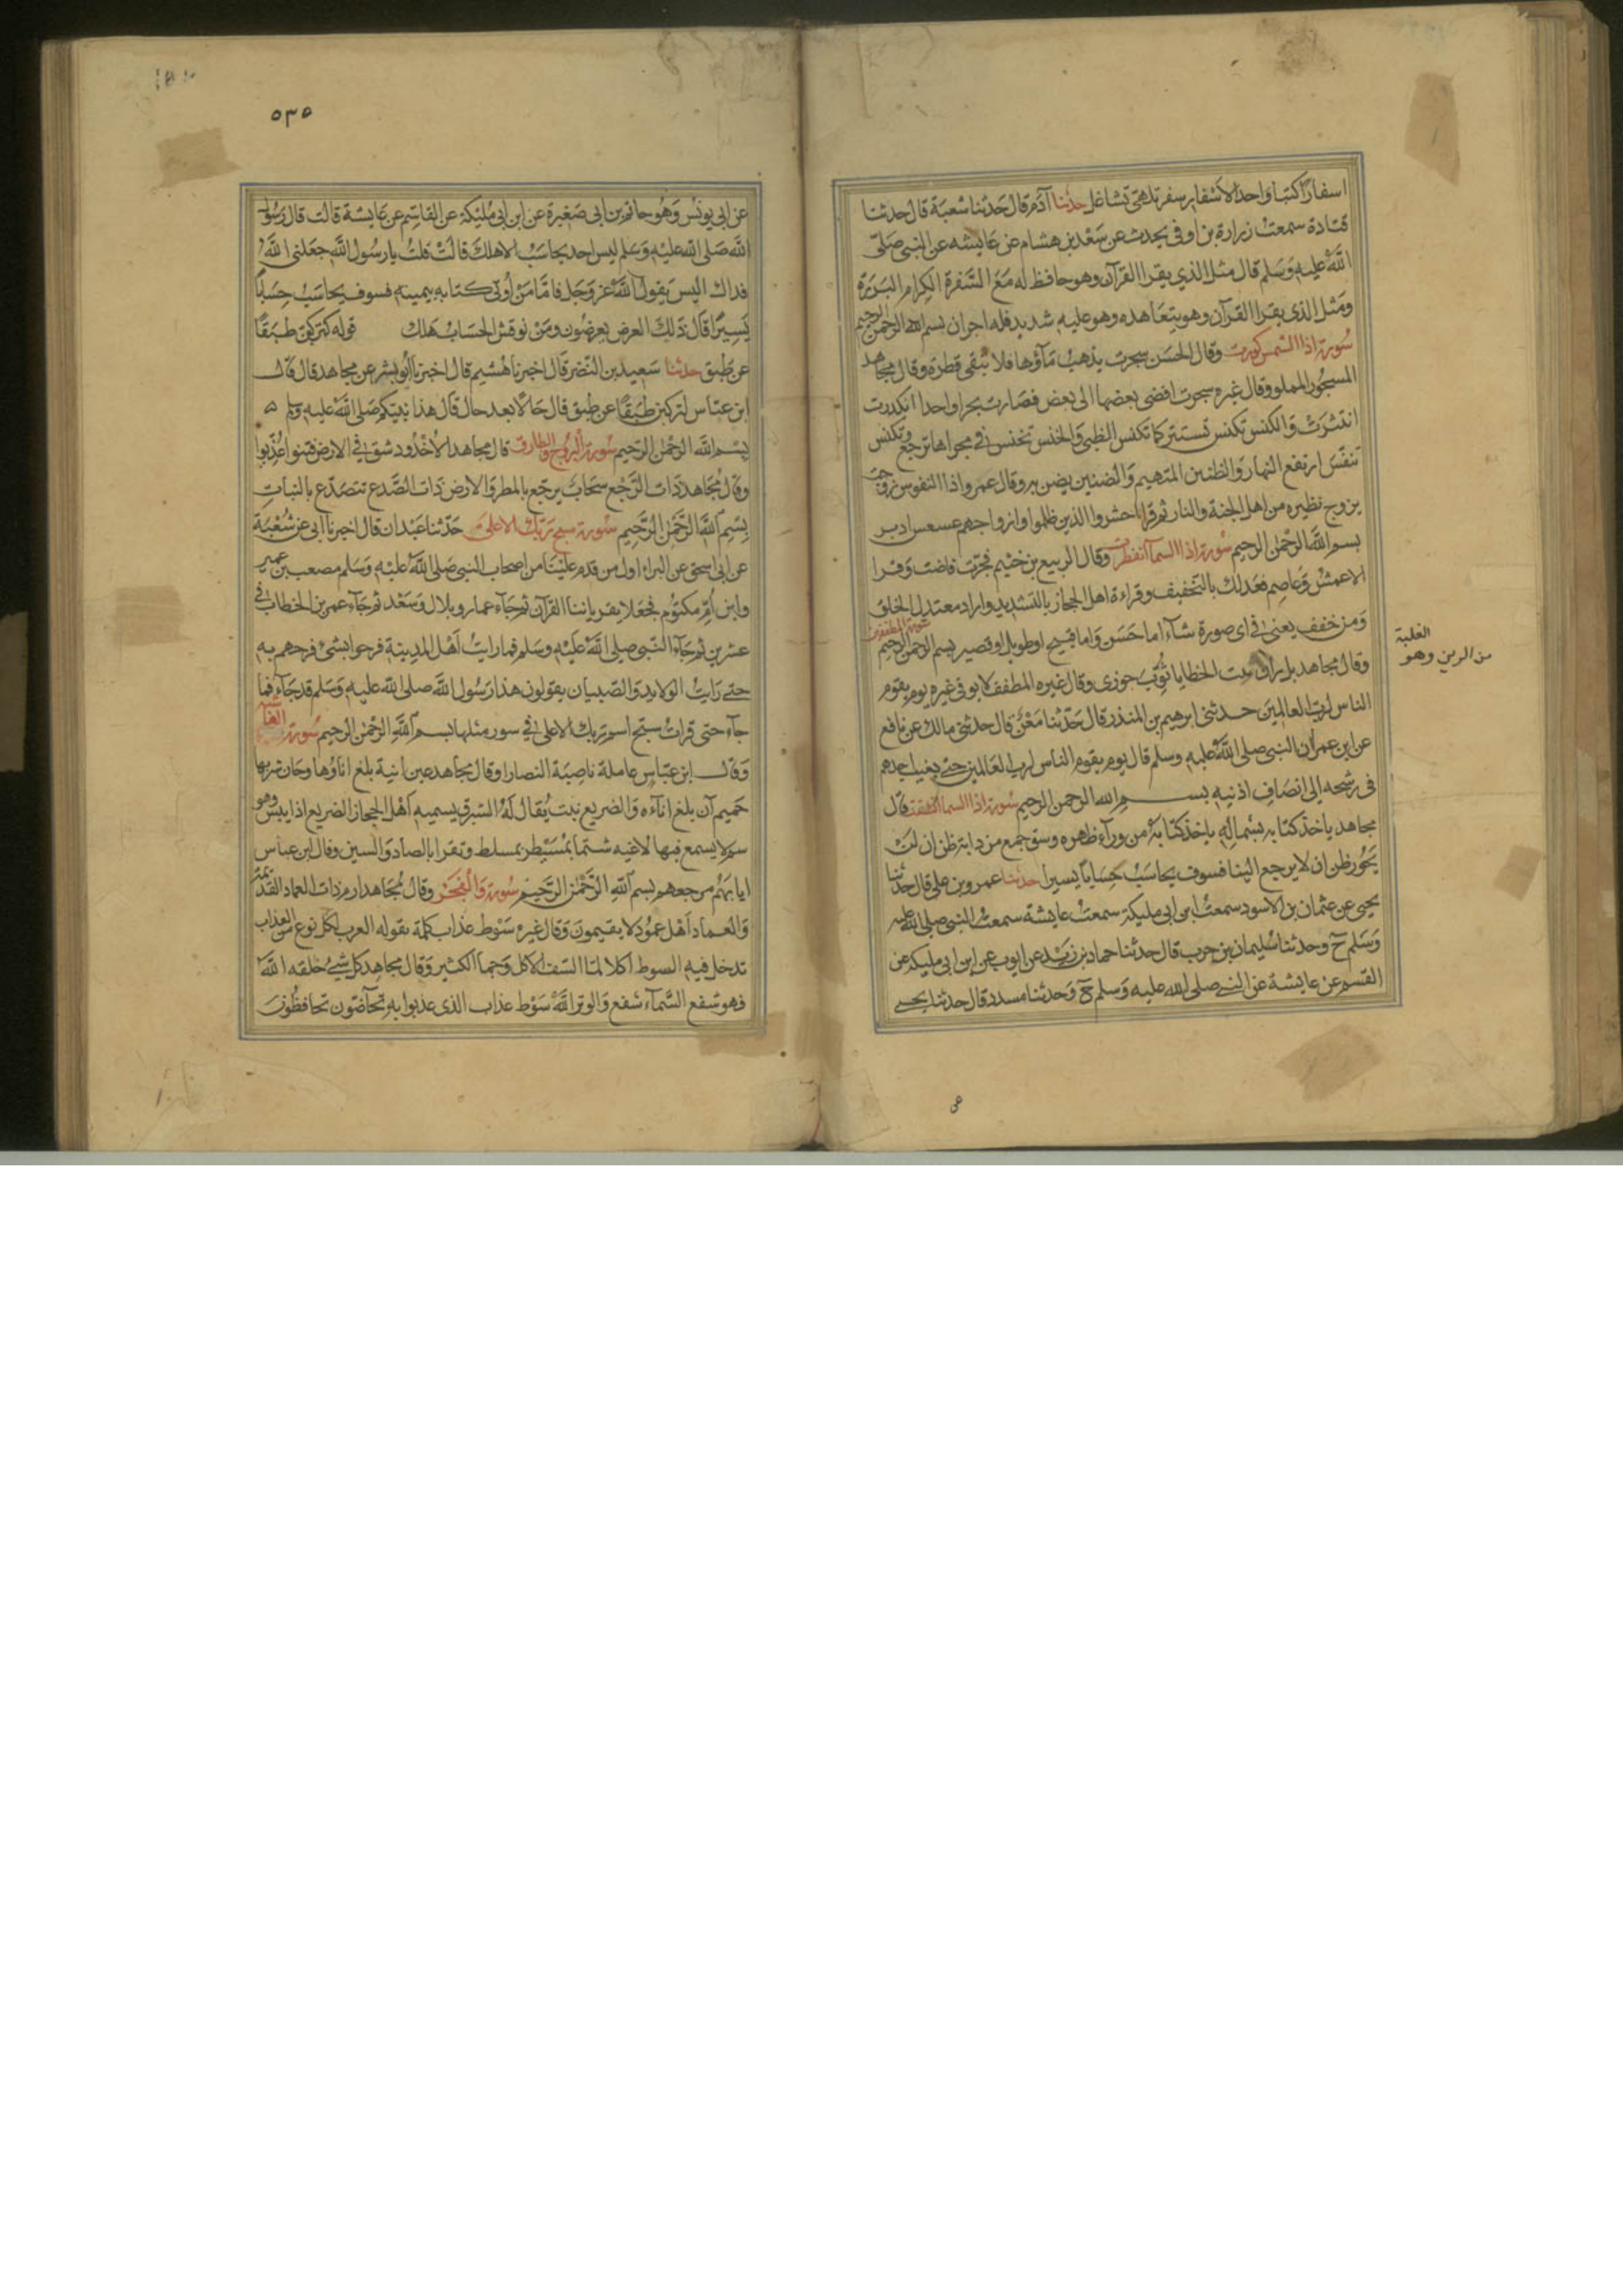 اسفارا كتبا واحد الاسفار سفر تلهى تشاغل حدثنا آدم قال حدثنا شعبة قال حدثنا
قتادة سمعت زرارة بن اوفى يحدث عن سعد بن هشام عن عايشه عن النبى صلى
الله عليه وسلم قال مثل الذي يقرا القرآن وهو حافظ له مع السفرة الكرام البررة
ومثل الذى يقرا القرآن وهو يتعاهده وهو عليه شديد فله اجران بسم الله الرحمن الرحيم
سورة اذا الشمس كورت وقال الحسن سجرت يذهب مآؤها فلا تبقى قطرة وقال مجاهد
المسجور المملو وقال غيره سجرت افضى بعضها الى بعض فصارت بحرا واحدا انكدرت
انتثرت والكنس تكنس تستتر كما تكنس الظبى والخنس تخنس فى مجراها ترجع وتكنس
تنفس ارتفع النهار والظنين المتهيم والضنين يضن به وقال عمر واذا النفوس زوجت
يزوج نظيره من اهل الجنة والنار ثم قرا احشروا الذين ظلموا وازواجهم عسعس ادبر
بسم الله الرحمن الرحيم سورة اذا السمآ انفطرت وقال الربيع بن خثيم فجرت فاضت وقرا
الاعمش وعاصم فعدلك بالتخفيف وقراءة اهل الحجاز بالتشديد واراد معتدل الخلق
ومن خفف يعنى فى اى صورة شآء اما حسن واما قبيح او طويل او قصير بسم الرحمن الرحيم
سورة المطففين
وقال مجاهد بل ران ثبت الخطايا ثوب جوزى وقال غيره المطفف لا يوفى غيره يوم يقوم
الناس لرب العالمين حدثنى ابرهيم بن المنذر قال حدثنا معن قال حدثنى مالك عن نافع
عن ابن عمر ان النبى صلى الله عليه وسلم قال يوم يقوم الناس لرب العالمين حتى يغيب احدهم
فى رشحه الى انصاف اذنيه بسم الله الرحمن الرحيم سورة اذا السما انشقت قال
مجاهد ياخذ كتابه بشماله ياخذ كتابه من ورآء ظهره وسق جمع من دابة ظن ان لن
يحور ظن ان لا يرجع الينا فسوف يحاسب حسابا يسيرا حدثنا عمرو بن على قال حدثنا
يحيى عن عثمان بن الاسود سمعت ابن ابى مليكة سمعت عايشة سمعت النبى صلى الله عليه
وسلم ح وحدثنا سليمان بن حرب قال حدثنا حماد بن زيد عن ايوب عن ابن ابى مليكه عن
القسم عن عايشة عن النبى صلى الله عليه وسلم ح وحدثنا مسدد قال حدثنا يحيى
الغلبة
من الرين وهو
٥٣٥
عن ابى يونس وهو حاتم بن ابى صغيرة عن ابن ابى مليكة عن القاسم عن عايشة قالت قال رسول
الله صلى الله عليه وسلم ليس احد يحاسب الا هلك قالت قلت يا رسول الله جعلنى الله
فداك اليس يقول الله عز وجل فاما من اوتى كتابه بيمينه فسوف يحاسب حسابا
يسيرا قال ذلك العرض يعرضون ومن نوقش الحساب هلك قوله لتركبن طبقا
عن طبق حدثنا سعيد بن النضر قال اخبرنا هشيم قال اخبرنا ابو بشر عن مجاهد قال قال
ابن عباس لتركبن طبقا عن طبق قال حالا بعد حال قال هذا نبيكم صلى الله عليه وسلم
بسم الله الرحمن الرحيم سورة البروج والطارق قال مجاهد الاخدود شق فى الارض فتنوا عذبوا
وقال مجاهد ذات الرجع سحاب يرجع بالمطر والارض ذات الصدع تتصدع بالنبات
بسم الله الرحمن الرحيم سورة سبح ربك الاعلى حدثنا عبدان قال اخبرنا ابى عن شعبة
عن ابى اسحق عن البراء اول من قدم علينا من اصحاب النبى صلى الله عليه وسلم مصعب بن عمير
وابن ام مكتوم فجعلا يقرياننا القرآن ثم جآء عمار وبلال وسعد ثم جآء عمر بن الخطاب فى
عشرين ثم جآء النبى صلى الله عليه وسلم فما رايت اهل المدينة فرحوا بشئ فرحهم به
حتى رايت الولايد والصبيان يقولون هذا رسول الله صلى الله عليه وسلم قد جآء فما
جآء حتى قرات سبح اسم ربك الاعلى فى سور مثلها بسم الله الرحمن الرحيم سورة الغاشيه
وقال ابن عباس عاملة ناصبة النصارا وقال مجاهد عين انية بلغ اناؤها وحان شربها
حميم آن بلغ اناءه والضريع نبت يقال له الشبرق يسميه اهل الحجاز الضريع اذا يبس وهو
سم لا يسمع فيها لاغيه شتما بمسيطر بمسلط وتقرا بالصاد والسين وقال ابن عباس
ايابهم مرجعهم بسم الله الرحمن الرحيم سورة والفجر وقال مجاهد ارم ذات العماد القديمة
والعماد اهل عمود لا يقيمون وقال غيره سوط عذاب كلمة يقوله العرب لكل نوع من العذاب
تدخل فيه السوط اكلا لما السف الاكل وجما الكثير وقال مجاهد كل شئ خلقه الله
فهو شفع السمآء شفع والوتر الله سوط عذاب الذى عذبوا به تحآضون تحافظون